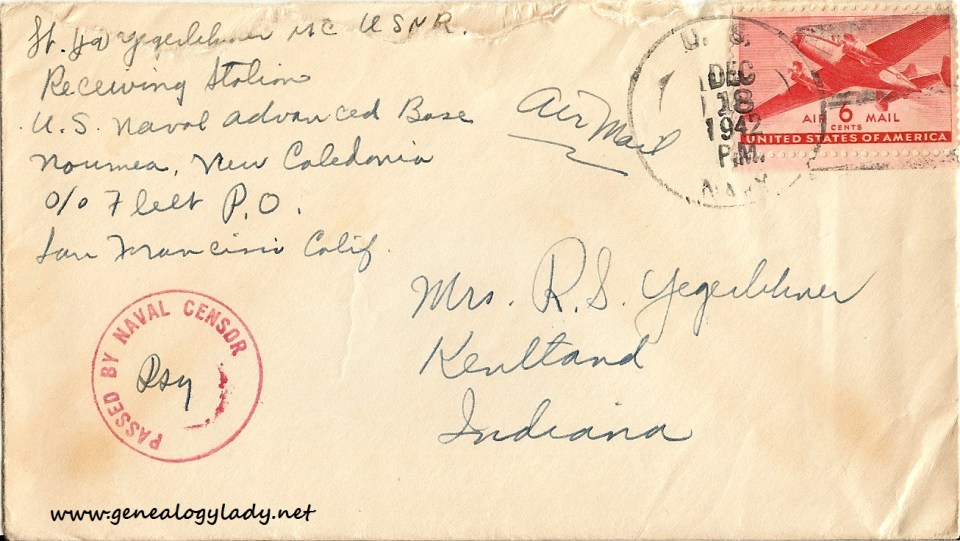 Lt. Yegerlehner MC USNR.
Receiving Station
U.S. Naval Advanced Base
Noumea, New Caledonia
c/o Fleet P.O.
San Francisco Calif.
Air Mail
U. S.
DEC
18
1942
P.M.
NAVY
AIR 6 MAIL
CENTS
UNITED STATES OF AMERICA
Mrs. R.S. Yegerlehner
Kentland
Indiana
PASSED BY NAVAL CENSOR
RSY
www.genealogylady.net